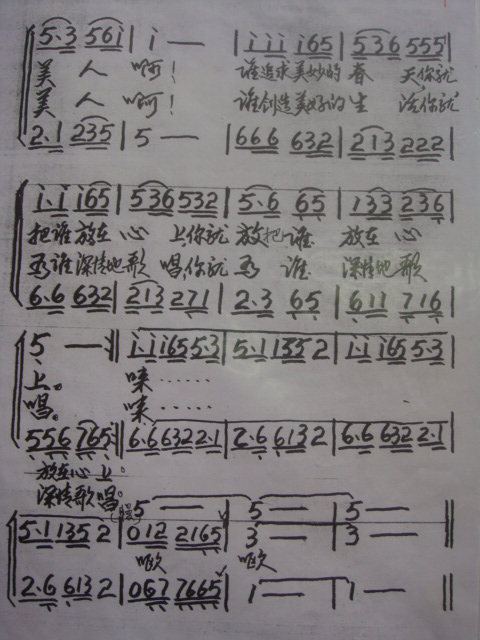 5·3 56i | i — | i i i i65 | 536 555 |
美 人 啊！ 谁追求美妙的春 天你就
美 人 啊！ 谁创造美好的生 活你就
2·1 235 | 5 — | 666 632 | 213 222 |
i·i i65 | 536 532 | 5·6 65 | 133 236 |
把谁放在 心 上你就 放把谁 放在 心
谁深情地歌 唱,你就 谁 深情地歌
6·6 632 | 213 271 | 2·3 65 | 611 716 |
5 — :‖ i·i i65 5·3 | 5·1 135 2 | i·i i65 5·3 |
上。 味……
唱。 味……
556 765 :‖ 6·6 632 2·1 | 2·6 613 2 | 6·6 632 2·1 |
放在心上。
深情歌唱。
5 — | 5 — | 5 — ‖
5·1 135 2 | 012 2165 | 3 — | 3 — ‖
呦 呦
2·6 613 2 | 067 7665 | 1 — | 1 — ‖